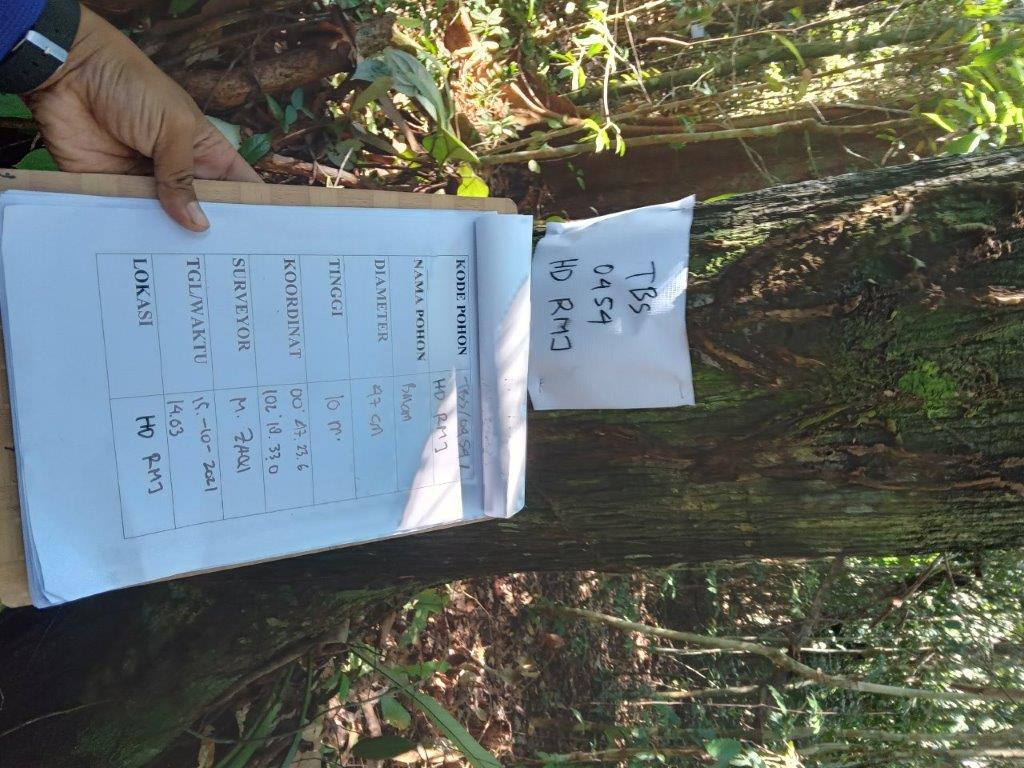 TBS
0454
HD RMJ
KODE POHON TBS/0454/
HD RMJ
NAMA POHON
DIAMETER 47 cm
TINGGI 10 m.
KOORDINAT 00° 47. 23.6
102° 18. 33.0
SURVEYOR M. ZAQI
TGL/WAKTU 15.-10-2021
14.03
LOKASI HD RMJ